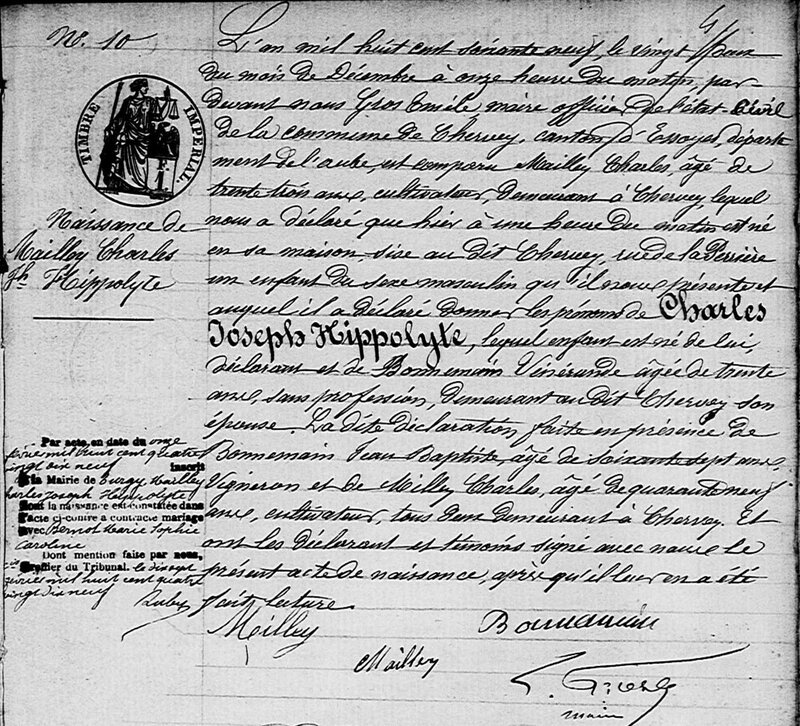 N.º 10
TIMBRE IMPERIAL
Naissance de
Mailley Charles
Jh Hippolyte
L'an mil huit cent soixante neuf, le vingt deux
du mois de Décembre à onze heure du matin, par-
devant nous Gros Emile, maire officier de l'état-civil
de la commune de Chervey, canton d'Essoyes, départe
ment de l'aube, est comparu Mailley Charles, âgé de
trente trois ans, cultivateur, demeurant à Chervey lequel
nous a déclaré que hier à une heure du matin est né
en sa maison sise au dit Chervey, rue de la Perrière
un enfant du sexe masculin qu'il nous présente et
auquel il a déclaré donner les prénoms de Charles
Joseph Hippolyte, lequel enfant est né de lui,
déclarant et de Bonnemain Vénérande âgée de trente
ans, sans profession, demeurant au dit Chervey son
épouse. La dite déclaration faite en présence de
Bonnemain Jean Baptiste, âgé de soixante sept ans,
Vigneron et de Milley Charles, âgé de quarante neuf
ans, cultivateur, tous deux demeurant à Chervey. Et
ont les déclarant et témoins signé avec nous le
présent acte de naissance, après qu'il leur en a été
fait lecture.
Par acte, en date du onze
février mil huit cent quatre
vingt dix neuf inscrit
à la Mairie de Mailley
Charles Joseph Hippolyte
dont la naissance est constatée dans
l'acte ci-contre a contracté mariage
avec Marie Sophie
Caroline
Dont mention faite par nous,
Greffier du Tribunal. le dix sept
février mil huit cent quatre
vingt dix neuf
Milley
Bonnemain
Mailley
E. Gros
maire